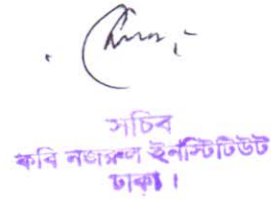 সচিব
কবি নজরুল ইনস্টিটিউট
ঢাকা।